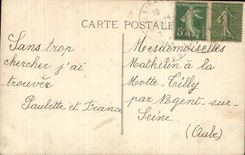 CARTE POSTALE
Sans trop
chercher j'ai
trouver
Paulette et France
Mesdemoiselles
Mathelin à la
Motte-Tilly
par Nogent-sur-
Seine
(Aube)